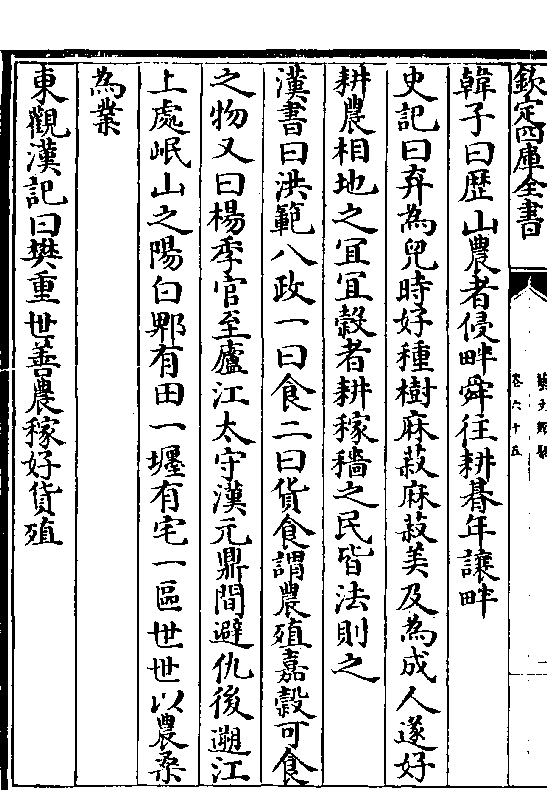 欽定四庫全書
藝文類聚
卷六十五
韓子曰歷山農者侵畔舜往耕朞年讓畔
史記曰弃為兒時好種樹麻菽麻菽美及為成人遂好
耕農相地之宜宜榖者耕稼穡之民皆法則之
漢書曰洪範八政一曰食二曰貨食謂農殖嘉榖可食
之物又曰楊季官至廬江太守漢元鼎間避仇後遡江
上處岷山之陽曰郫有田一㙻有宅一區世世以農桑
為業
東觀漢記曰樊重世善農稼好貨殖